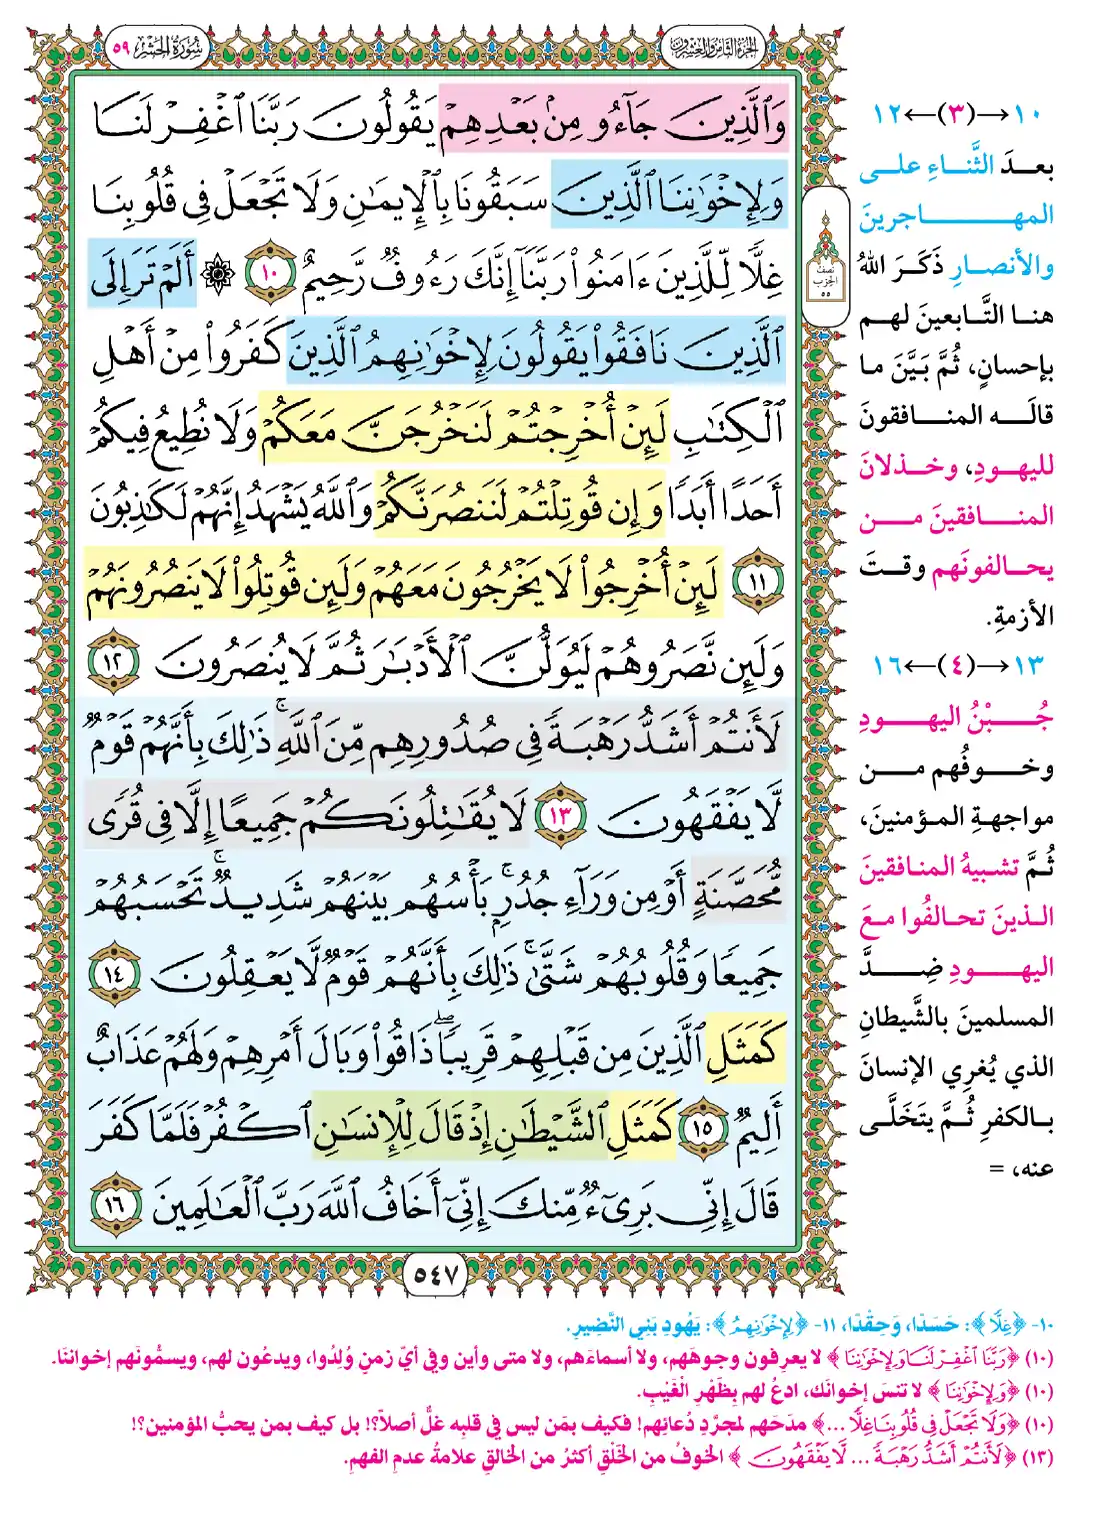 الجزء الثامن والعشرون
سورة الحشر ٥٩
وَٱلَّذِينَ جَآءُو مِنۢ بَعْدِهِمْ يَقُولُونَ رَبَّنَا ٱغْفِرْ لَنَا
وَلِإِخْوَٰنِنَا ٱلَّذِينَ سَبَقُونَا بِٱلْإِيمَٰنِ وَلَا تَجْعَلْ فِى قُلُوبِنَا
غِلًّا لِّلَّذِينَ ءَامَنُوا۟ رَبَّنَآ إِنَّكَ رَءُوفٌ رَّحِيمٌ ١٠ ۞ أَلَمْ تَرَ إِلَى
ٱلَّذِينَ نَافَقُوا۟ يَقُولُونَ لِإِخْوَٰنِهِمُ ٱلَّذِينَ كَفَرُوا۟ مِنْ أَهْلِ
ٱلْكِتَٰبِ لَئِنْ أُخْرِجْتُمْ لَنَخْرُجَنَّ مَعَكُمْ وَلَا نُطِيعُ فِيكُمْ
أَحَدًا أَبَدًا وَإِن قُوتِلْتُمْ لَنَنصُرَنَّكُمْ وَٱللَّهُ يَشْهَدُ إِنَّهُمْ لَكَٰذِبُونَ
١١ لَئِنْ أُخْرِجُوا۟ لَا يَخْرُجُونَ مَعَهُمْ وَلَئِن قُوتِلُوا۟ لَا يَنصُرُونَهُمْ
وَلَئِن نَّصَرُوهُمْ لَيُوَلُّنَّ ٱلْأَدْبَٰرَ ثُمَّ لَا يُنصَرُونَ ١٢
لَأَنتُمْ أَشَدُّ رَهْبَةً فِى صُدُورِهِم مِّنَ ٱللَّهِ ۚ ذَٰلِكَ بِأَنَّهُمْ قَوْمٌ
لَّا يَفْقَهُونَ ١٣ لَا يُقَٰتِلُونَكُمْ جَمِيعًا إِلَّا فِى قُرًى
مُّحَصَّنَةٍ أَوْ مِن وَرَآءِ جُدُرٍۭ ۚ بَأْسُهُم بَيْنَهُمْ شَدِيدٌ ۚ تَحْسَبُهُمْ
جَمِيعًا وَقُلُوبُهُمْ شَتَّىٰ ۚ ذَٰلِكَ بِأَنَّهُمْ قَوْمٌ لَّا يَعْقِلُونَ ١٤
كَمَثَلِ ٱلَّذِينَ مِن قَبْلِهِمْ قَرِيبًا ۖ ذَاقُوا۟ وَبَالَ أَمْرِهِمْ وَلَهُمْ عَذَابٌ
أَلِيمٌ ١٥ كَمَثَلِ ٱلشَّيْطَٰنِ إِذْ قَالَ لِلْإِنسَٰنِ ٱكْفُرْ فَلَمَّا كَفَرَ
قَالَ إِنِّى بَرِىٓءٌ مِّنكَ إِنِّىٓ أَخَافُ ٱللَّهَ رَبَّ ٱلْعَٰلَمِينَ ١٦
٥٤٧
نصف
الحزب
٥٥
١٠→(٣)←١٢
بعدَ الثَّناءِ على
المهاجرينَ
والأنصارِ ذَكَرَ اللهُ
هنا التَّابعينَ لهم
بإحسانٍ، ثُمَّ بَيَّنَ ما
قالَه المنافقونَ
لليهودِ، وخذلانَ
المنافقينَ من
يحالفونَهم وقتَ
الأزمةِ.
١٣→(٤)←١٦
جُبْنُ اليهودِ
وخوفُهم من
مواجهةِ المؤمنينَ،
ثُمَّ تشبيهُ المنافقينَ
الذينَ تحالفُوا معَ
اليهودِ ضِدَّ
المسلمينَ بالشَّيطانِ
الذي يُغرِي الإنسانَ
بالكفرِ ثُمَّ يتَخَلَّى
عنه، =
١٠- ﴿غِلًّا﴾: حَسَدًا، وَحِقْدًا، ١١- ﴿لِإِخْوَٰنِهِمُ﴾: يَهُودِ بَنِي النَّضِيرِ.
(١٠) ﴿رَبَّنَا ٱغْفِرْ لَنَا وَلِإِخْوَٰنِنَا﴾ لا يعرفون وجوهَهم، ولا أسماءَهم، ولا متى وأين وفي أيِّ زمنٍ وُلِدُوا، ويدعُون لهم، ويسمُّونَهم إخواننَا.
(١٠) ﴿وَلِإِخْوَٰنِنَا﴾ لا تنسَ إخوانَك، ادعُ لهم بِظَهْرِ الْغَيْبِ.
(١٠) ﴿وَلَا تَجْعَلْ فِى قُلُوبِنَا غِلًّا ...﴾ مدَحَهم لمجرَّدِ دُعائِهم! فكيفَ بمَن ليس في قلبِه غلٌّ أصلاً؟! بل كيف بمن يحبُّ المؤمنين؟!
(١٣) ﴿لَأَنتُمْ أَشَدُّ رَهْبَةً ... لَّا يَفْقَهُونَ﴾ الخوفُ من الخَلْقِ أكثرُ من الخالقِ علامةُ عدمِ الفهمِ.